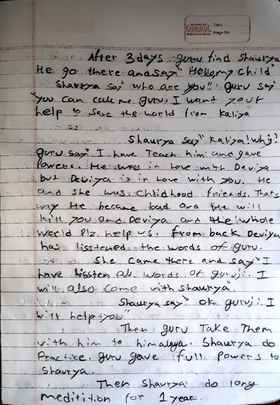 After 3 days guru find Shaurya
He go there and say "Hello my Child"
Shaurya say "who are you". guru say
"you can call me guru. I want your
help to save the world from Kaliya
Shaurya say "Kaliya! why?
guru say "I have Teach him and gave
Powers. He was in Love with Deviya
but Deviya is in Love with you. He
and She was childhood friends. That's
way He became bad and He will
kill you and Deviya and the whole
world Plz help us. From back Deviya
has lisstened the words of guru.
She came there and say "I
have lissten all words of guruji. I
will also come with shaurya.
Shaurya say "ok guruji. I
will help you"
Then guru Take Them
with him to himalaya. Shaurya do
Practice. guru gave full Powers to
Shaurya.
Then Shaurya do long
meditition for 1 year.